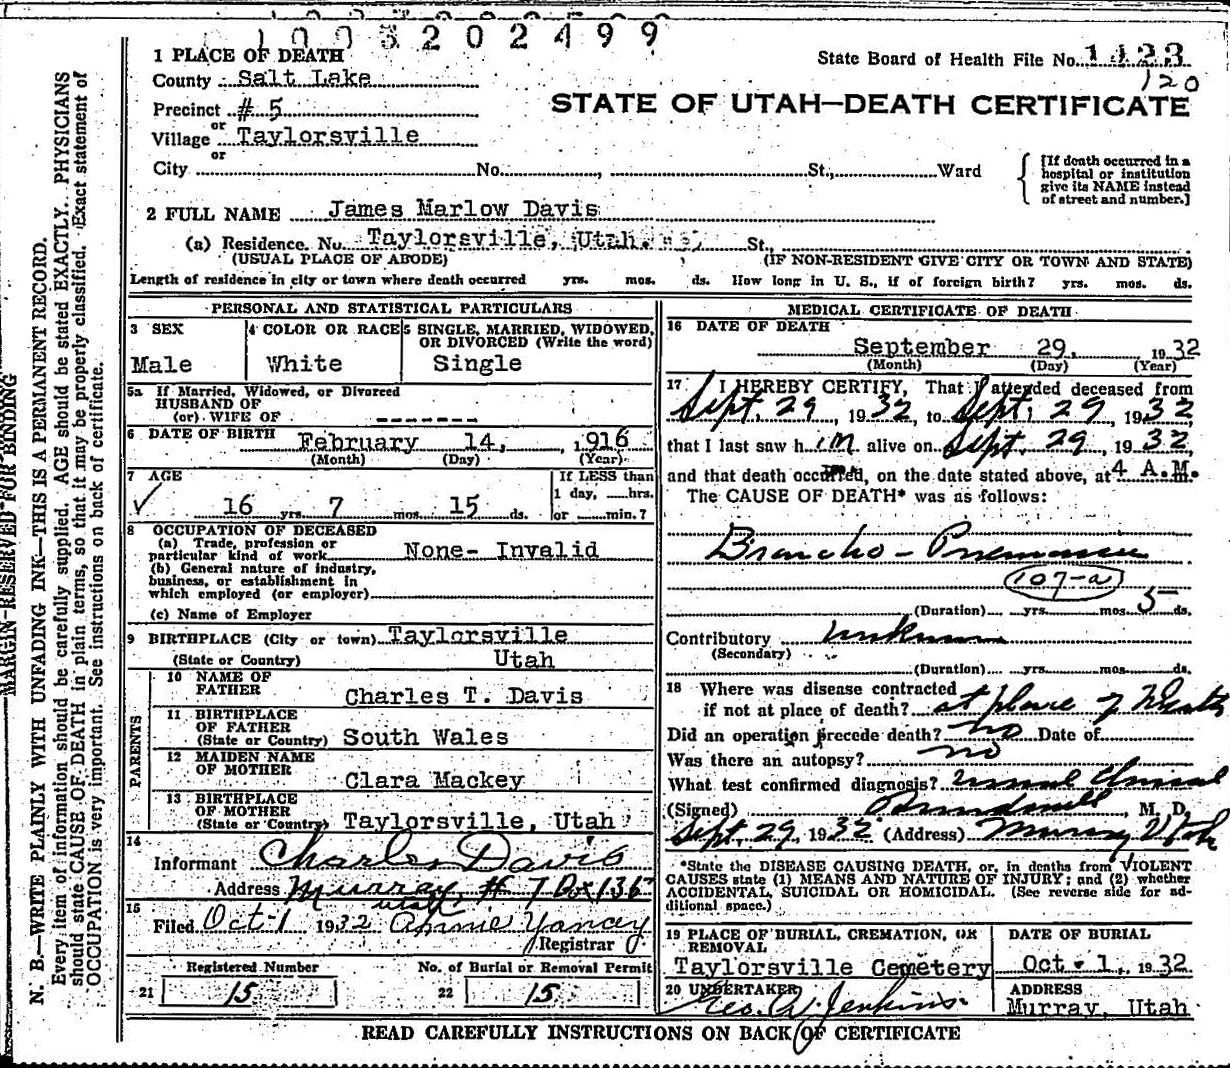 1003202499
1 PLACE OF DEATH
State Board of Health File No. 1423
120
County Salt Lake
STATE OF UTAH—DEATH CERTIFICATE
Precinct # 5
or
Village Taylorsville
or
City No. , St., Ward
[If death occurred in a hospital or institution give its NAME instead of street and number.]
2 FULL NAME James Marlow Davis
(a) Residence. No. Taylorsville, Utah. St.,
(USUAL PLACE OF ABODE) (IF NON-RESIDENT GIVE CITY OR TOWN AND STATE)
Length of residence in city or town where death occurred yrs. mos. ds. How long in U. S., if of foreign birth? yrs. mos. ds.
PERSONAL AND STATISTICAL PARTICULARS
3 SEX
Male
4 COLOR OR RACE
White
5 SINGLE, MARRIED, WIDOWED,
OR DIVORCED (Write the word)
Single
5a If Married, Widowed, or Divorced
HUSBAND OF
(or) WIFE OF --------
6 DATE OF BIRTH February 14, 1916
(Month) (Day) (Year)
7 AGE
16 yrs. 7 mos. 15 ds.
If LESS than
1 day, ......hrs.
or ......min.?
8 OCCUPATION OF DECEASED
(a) Trade, profession or
particular kind of work None- Invalid
(b) General nature of industry,
business, or establishment in
which employed (or employer)
(c) Name of Employer
9 BIRTHPLACE (City or town) Taylorsville
(State or Country) Utah
PARENTS
10 NAME OF
FATHER Charles T. Davis
11 BIRTHPLACE
OF FATHER
(State or Country) South Wales
12 MAIDEN NAME
OF MOTHER Clara Mackey
13 BIRTHPLACE
OF MOTHER
(State or Country) Taylorsville, Utah
14
Informant Charles Davis
Address Murray, # 7 Box 136
Utah
15
Filed Oct-1 1932 Annie Yancey
Registrar
Registered Number
21 15
No. of Burial or Removal Permit
22 15
MEDICAL CERTIFICATE OF DEATH
16 DATE OF DEATH
September 29, 1932
(Month) (Day) (Year)
17 I HEREBY CERTIFY, That I attended deceased from
Sept. 29, 1932, to Sept. 29, 1932,
that I last saw him alive on Sept. 29, 1932,
and that death occurred, on the date stated above, at 4 A.M.
The CAUSE OF DEATH* was as follows:
Broncho-Pneumonia
107-a
(Duration) yrs. mos. 5 ds.
Contributory unknown
(Secondary)
(Duration) yrs. mos. ds.
18 Where was disease contracted
if not at place of death? at place of Death
Did an operation precede death? no Date of
Was there an autopsy? no
What test confirmed diagnosis? usual Clinical
(Signed) , M. D.
Sept. 29, 1932 (Address) Murray Utah
*State the DISEASE CAUSING DEATH, or, in deaths from VIOLENT
CAUSES state (1) MEANS AND NATURE OF INJURY; and (2) whether
ACCIDENTAL, SUICIDAL OR HOMICIDAL. (See reverse side for ad-
ditional space.)
19 PLACE OF BURIAL, CREMATION, OR
REMOVAL
Taylorsville Cemetery
DATE OF BURIAL
Oct. 1, 1932
20 UNDERTAKER
Geo. W. Jenkins
ADDRESS
Murray, Utah
READ CAREFULLY INSTRUCTIONS ON BACK OF CERTIFICATE
MARGIN RESERVED FOR BINDING
N. B.—WRITE PLAINLY WITH UNFADING INK—THIS IS A PERMANENT RECORD.
Every item of information should be carefully supplied. AGE should be stated EXACTLY. PHYSICIANS
should state CAUSE OF DEATH in plain terms, so that it may be properly classified. Exact statement of
OCCUPATION is very important. See instructions on back of certificate.